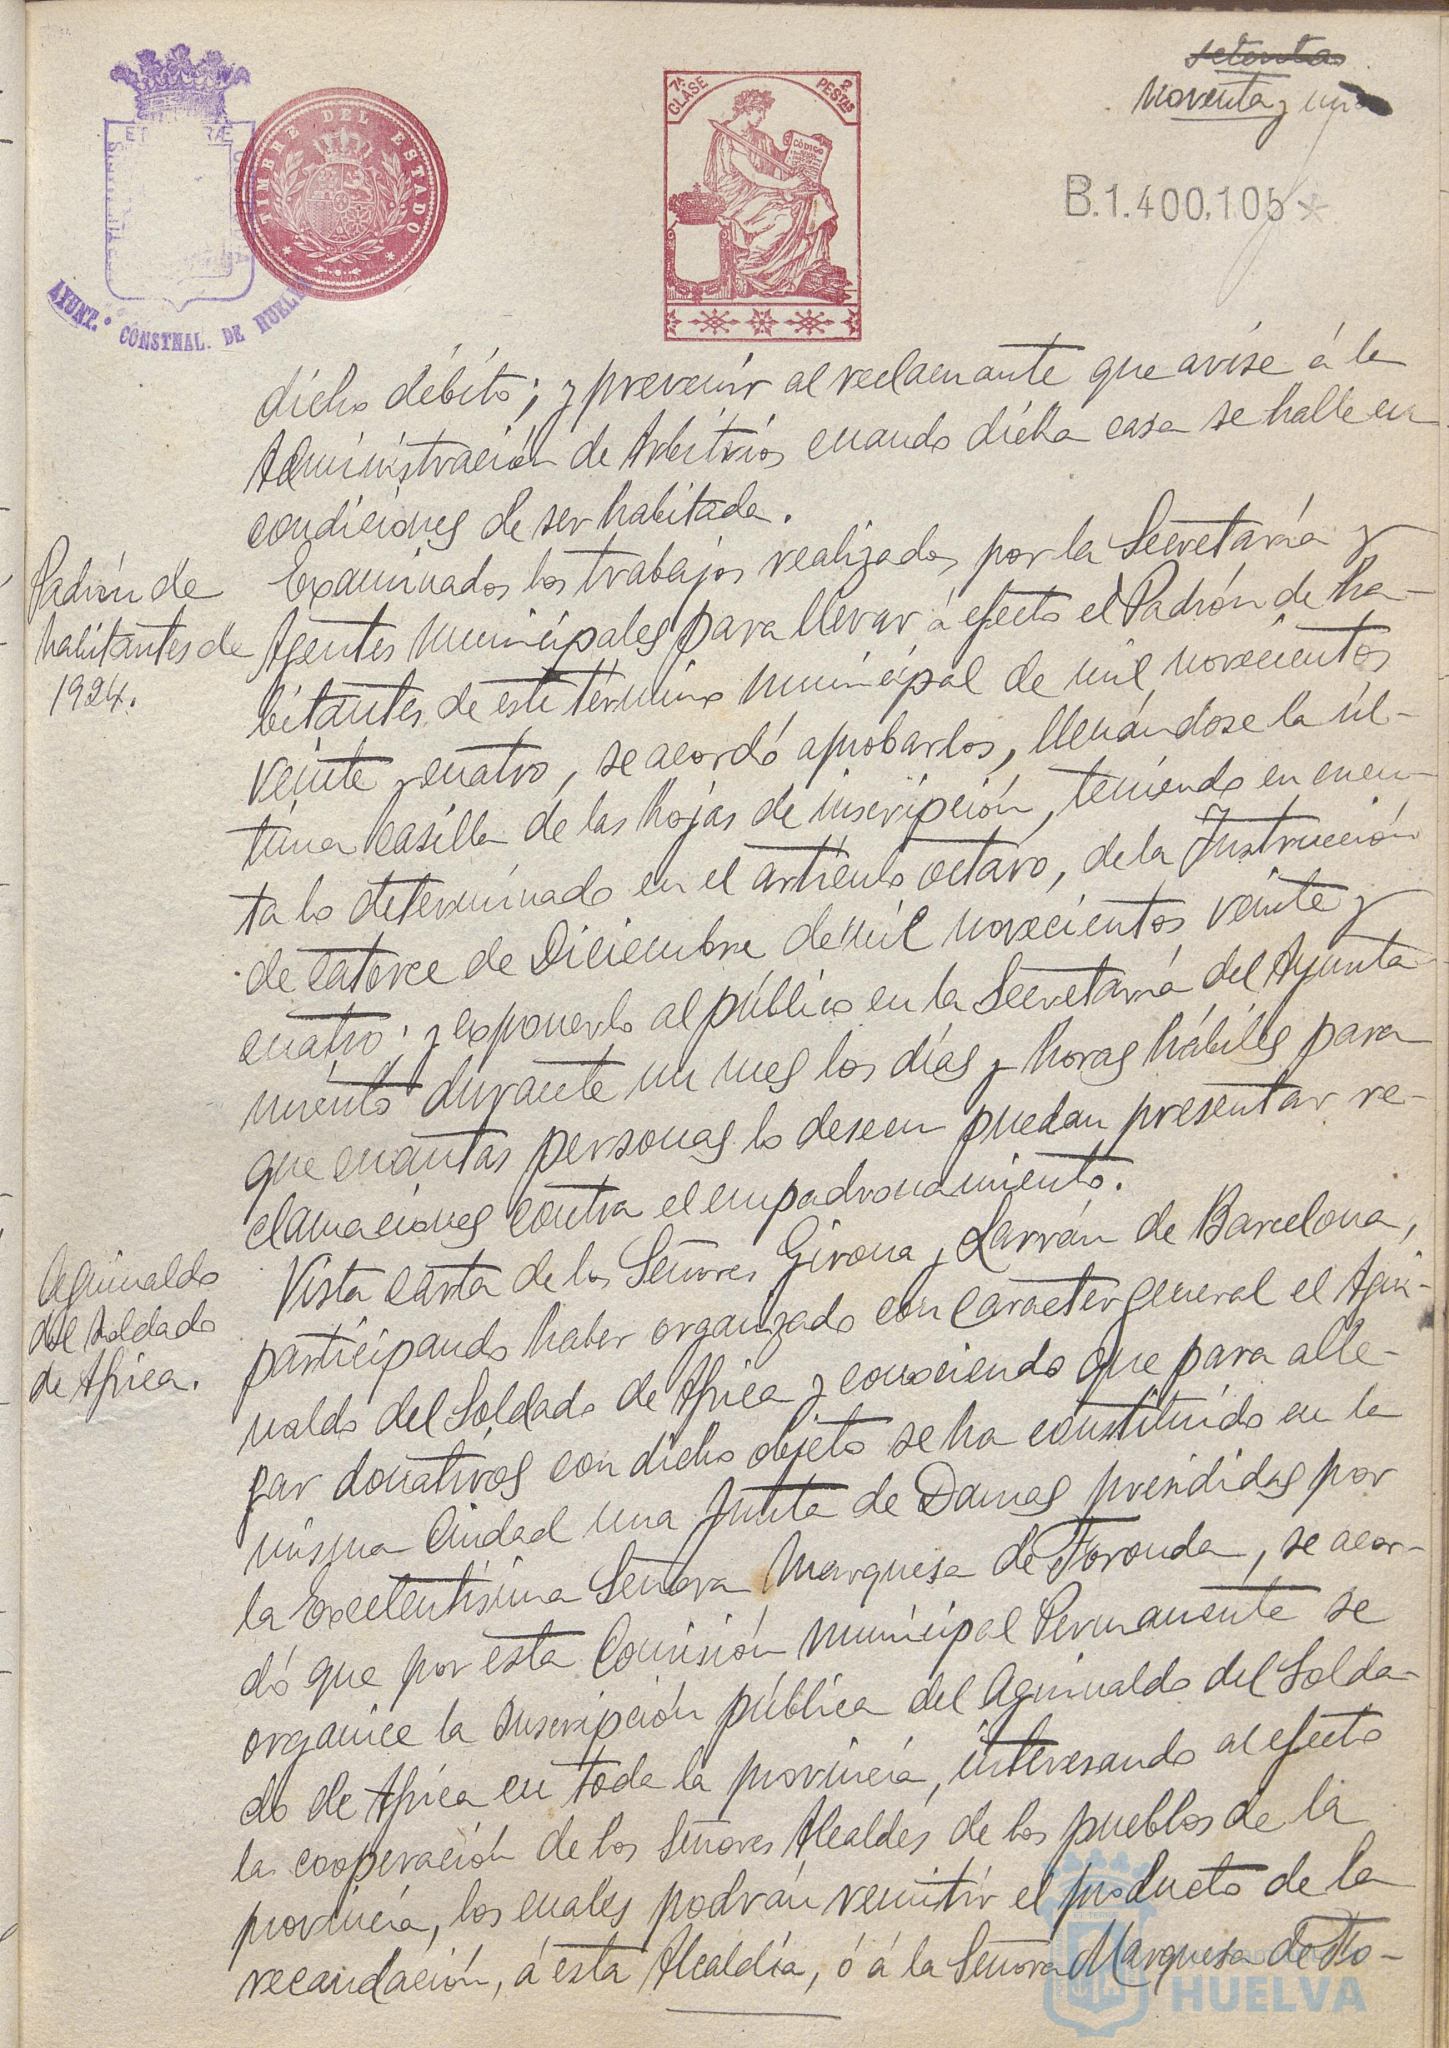 setenta
noventa y un
B.1.400.105*
7ª CLASE
2 PESTAS
CÓDIGO
TIMBRE DEL ESTADO
AYUNT. CONSTNAL. DE HUELVA
dicho débito; y prevenir al reclamante que avise á la
Administración de Arbitrios cuando dicha casa se halle en
condiciones de ser habitada.
Padrón de
habitantes de
1924.
Examinados los trabajos realizados por la Secretaría y
Agentes municipales para llevar á efecto el Padrón de ha-
bitantes de este término municipal de mil novecientos
veinte y cuatro, se acordó aprobarlos, llenándose la úl-
tima casilla de las hojas de inscripción, teniendo en cuen-
ta lo determinado en el artículo octavo, de la Instrucción
de catorce de Diciembre de mil novecientos veinte y
cuatro; y exponerlo al público en la Secretaría del Ayunta
miento durante un mes los días y horas hábiles para
que cuantas personas lo deseen puedan presentar re-
clamaciones contra el empadronamiento.
Aguinaldo
del Soldado
de Africa.
Vista carta de los Señores Girona y Larrán de Barcelona,
participando haber organizado con caracter general el Agui-
naldo del Soldado de Africa y conociendo que para alle-
gar donativos con dicho objeto se ha constituído en la
misma Ciudad una Junta de Damas presididas por
la Excelentísima Señora Marquesa de Foronda, se acor-
dó que por esta Comisión municipal Permanente se
organice la suscripción pública del Aguinaldo del Solda-
do de Africa en toda la provincia, interesando al efecto
la cooperación de los Señores Alcaldes de los pueblos de la
provincia, los cuales podrán remitir el producto de la
recaudación, á esta Alcaldía, ó á la Señora Marquesa de Fo-
HUELVA